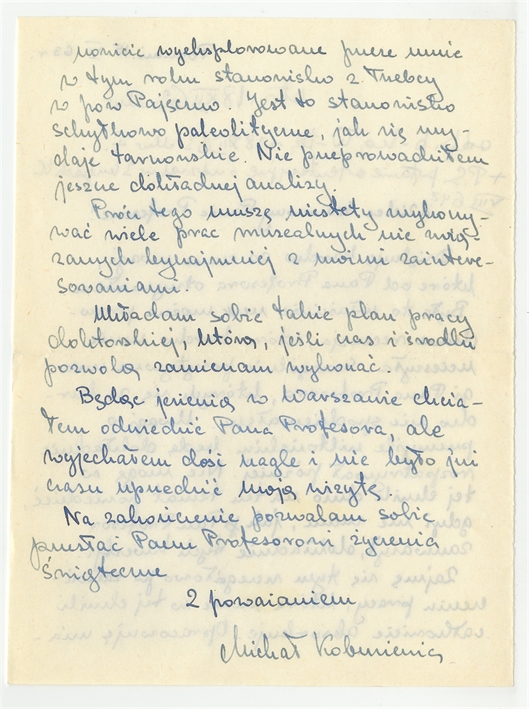 nonicie wyeksplorowane przez mnie
w tym roku stanowisko z Trzebcy
w pow Pajęczno. Jest to stanowisko
schyłkowo paleolityczne, jak się wy-
daje tarnowskie. Nie przeprowadziłem
jeszcze dokładnej analizy.
Prócz tego muszę niestety wykony-
wać wiele prac muzealnych nie zwią-
zanych bynajmniej z moimi zaintere-
sowaniami.
Układam sobie także plan pracy
doktorskiej, którą, jeśli czas i środki
pozwolą zamierzam wykonać.
Będąc jesienią w Warszawie chcia-
łem odwiedzić Pana Profesora, ale
wyjechałem dość nagle i nie było już
czasu uprzedzić moją wizytę.
Na zakończenie pozwalam sobie
przesłać Panu Profesorowi życzenia
Świąteczne
Z poważaniem
Michał Kobusiewicz